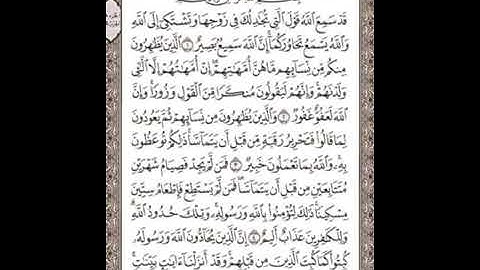 قَدْ سَمِعَ ٱللَّهُ قَوْلَ ٱلَّتِى تُجَٰدِلُكَ فِى زَوْجِهَا وَتَشْتَكِىٓ إِلَى ٱللَّهِ
وَٱللَّهُ يَسْمَعُ تَحَاوُرَكُمَآ إِنَّ ٱللَّهَ سَمِيعٌۢ بَصِيرٌ ١ ٱلَّذِينَ يُظَٰهِرُونَ
مِنكُم مِّن نِّسَآئِهِم مَّا هُنَّ أُمَّهَٰتِهِمْ إِنْ أُمَّهَٰتُهُمْ إِلَّا ٱلَّٰٓـِٔى
وَلَدْنَهُمْ وَإِنَّهُمْ لَيَقُولُونَ مُنكَرًا مِّنَ ٱلْقَوْلِ وَزُورًا وَإِنَّ
ٱللَّهَ لَعَفُوٌّ غَفُورٌ ٢ وَٱلَّذِينَ يُظَٰهِرُونَ مِن نِّسَآئِهِمْ ثُمَّ يَعُودُونَ
لِمَا قَالُوا۟ فَتَحْرِيرُ رَقَبَةٍ مِّن قَبْلِ أَن يَتَمَآسَّا ذَٰلِكُمْ تُوعَظُونَ
بِهِۦ وَٱللَّهُ بِمَا تَعْمَلُونَ خَبِيرٌ ٣ فَمَن لَّمْ يَجِدْ فَصِيَامُ شَهْرَيْنِ
مُتَتَابِعَيْنِ مِن قَبْلِ أَن يَتَمَآسَّا فَمَن لَّمْ يَسْتَطِعْ فَإِطْعَامُ سِتِّينَ
مِسْكِينًا ذَٰلِكَ لِتُؤْمِنُوا۟ بِٱللَّهِ وَرَسُولِهِۦ وَتِلْكَ حُدُودُ ٱللَّهِ
وَلِلْكَٰفِرِينَ عَذَابٌ أَلِيمٌ ٤ إِنَّ ٱلَّذِينَ يُحَآدُّونَ ٱللَّهَ وَرَسُولَهُۥ
كُبِتُوا۟ كَمَا كُبِتَ ٱلَّذِينَ مِن قَبْلِهِمْ وَقَدْ أَنزَلْنَآ ءَايَٰتٍۭ بَيِّنَٰتٍ